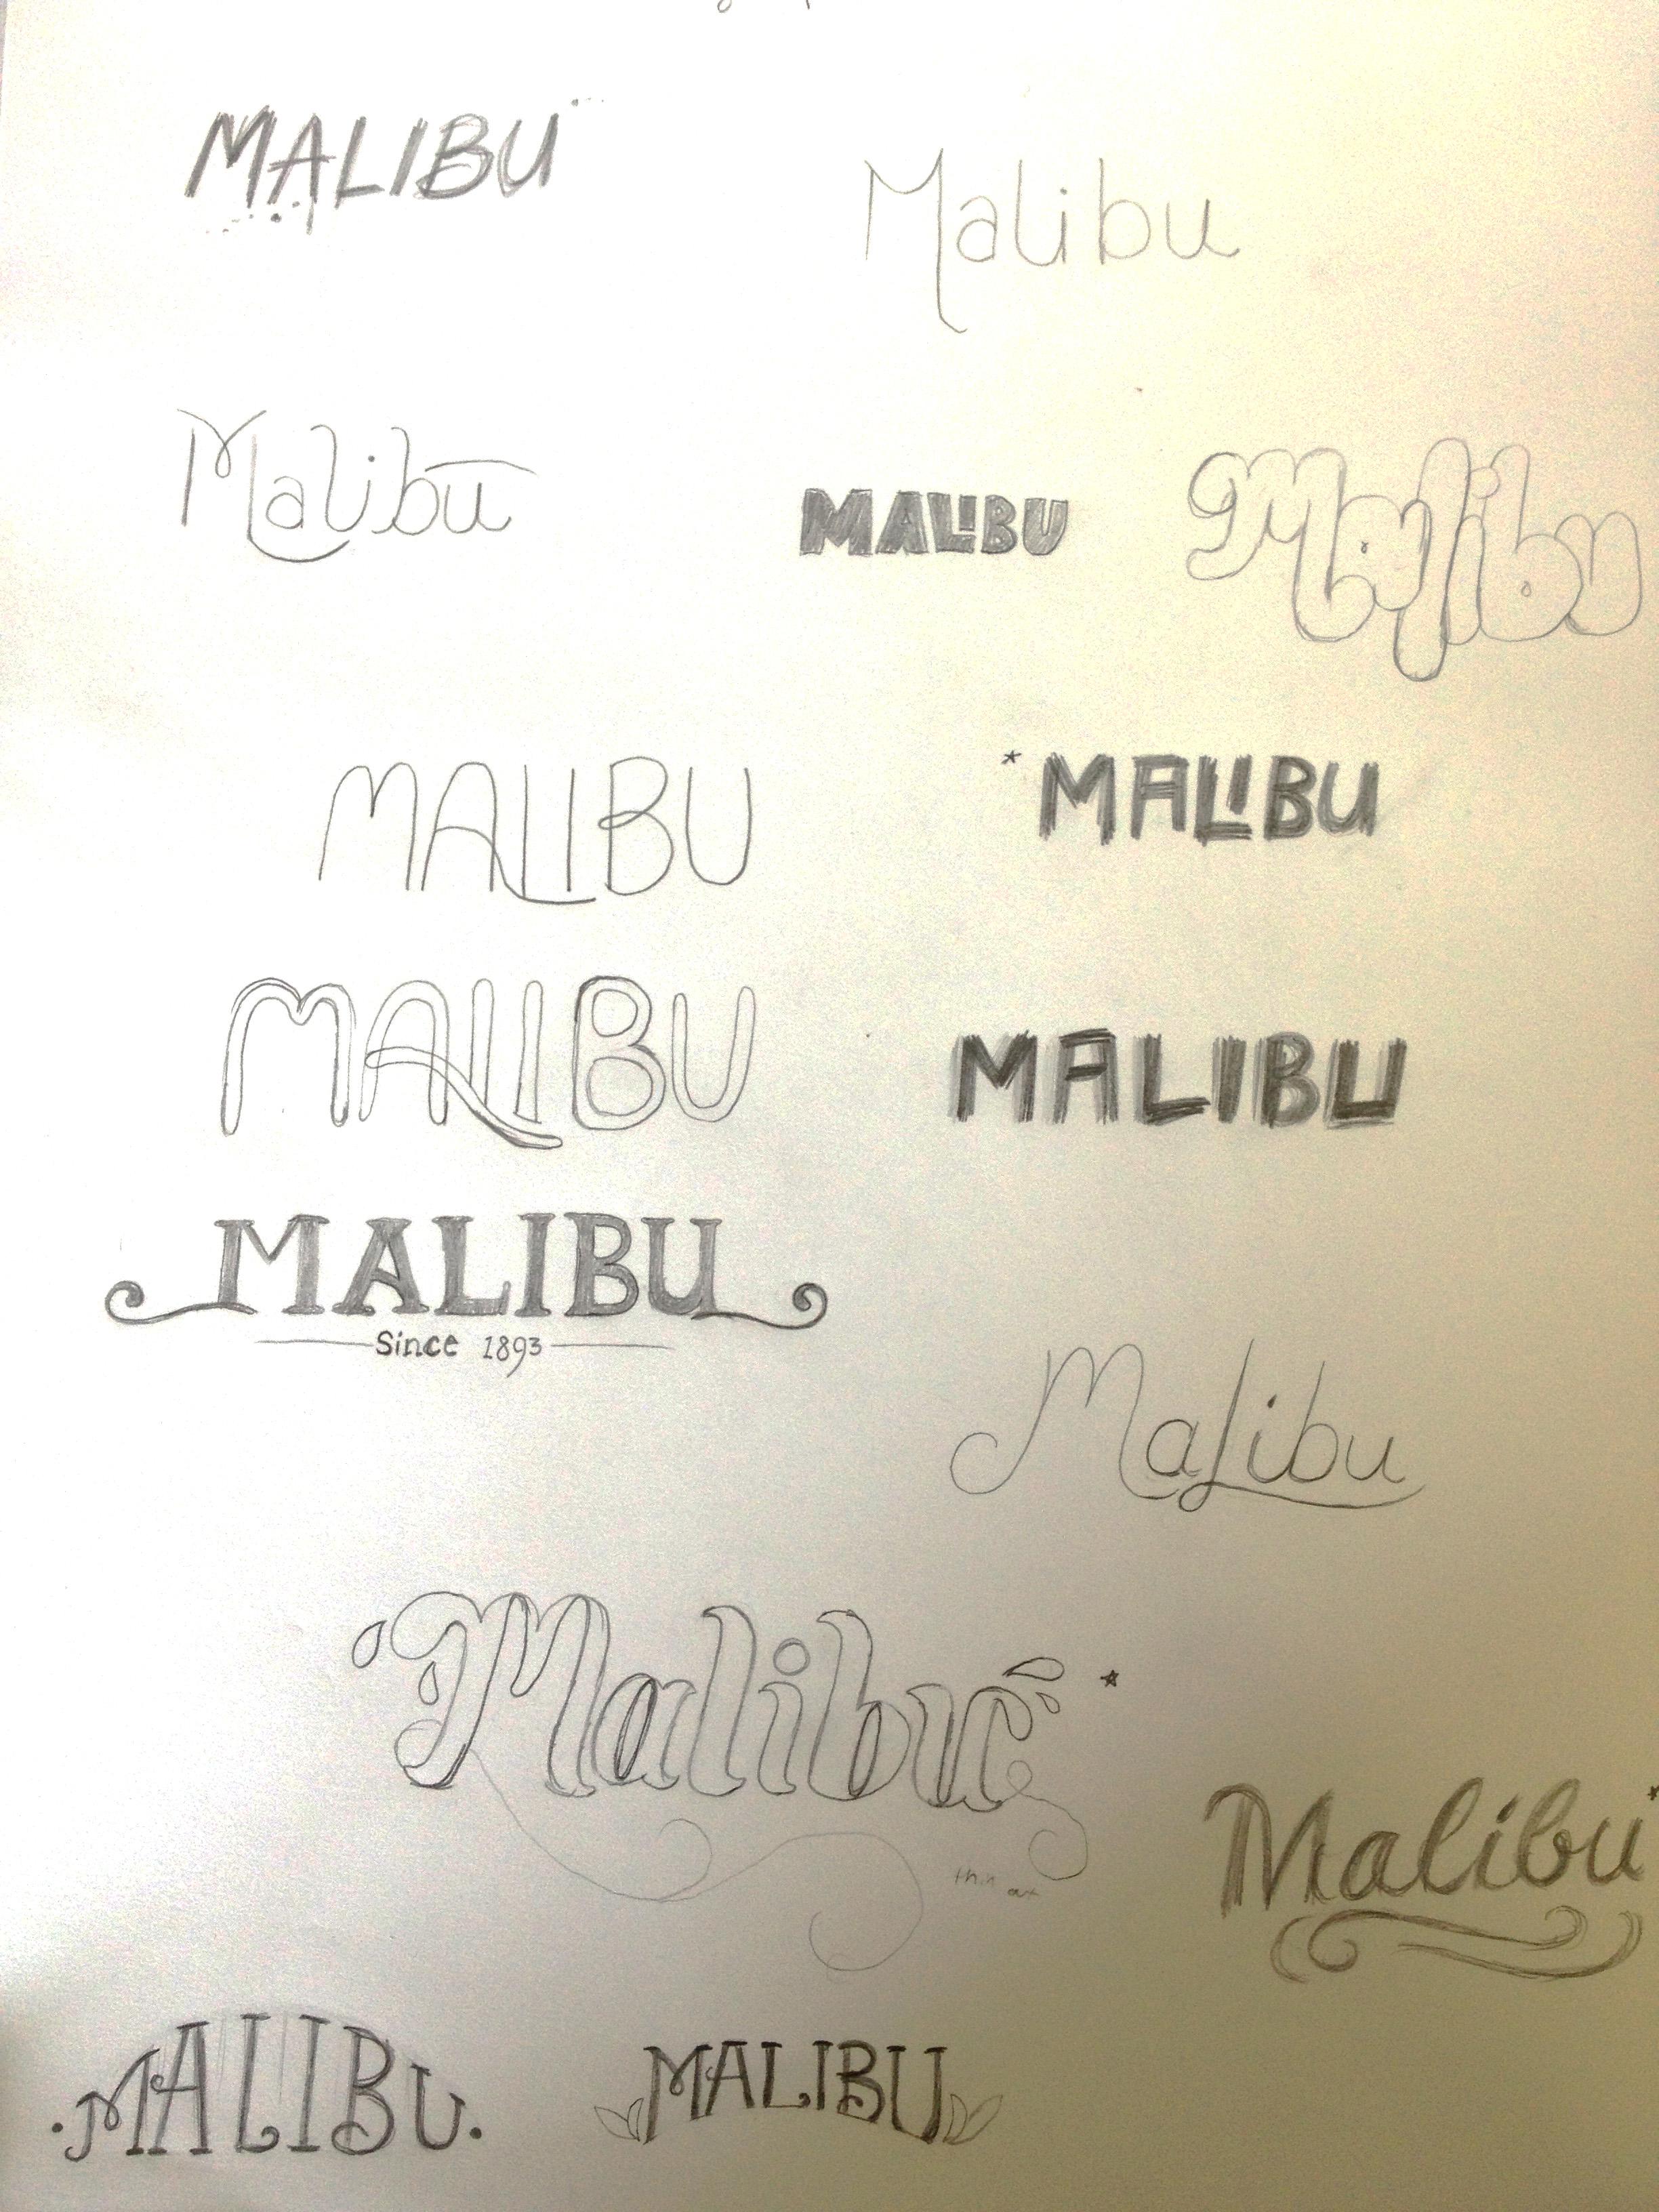 MALIBU
Malibu
Malibu
MALIBU
Malibu
MALIBU
* MALIBU
MALIBU
MALIBU
MALIBU
Since 1893
MaLibu
Malibu
Malibu
MALIBU
MALIBU